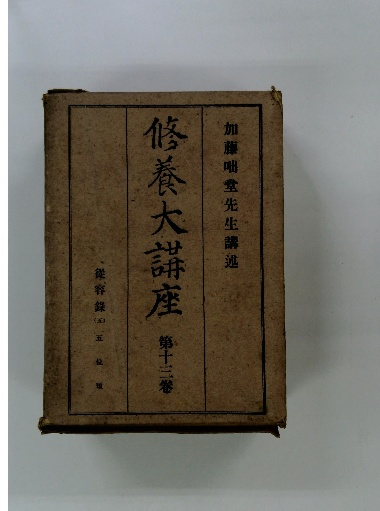 加藤咄堂先生講述
修養大講座 第十三卷
從容録(五) 五位頌